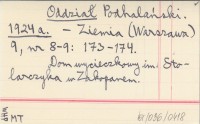 Oddział Podhalański.
1924 a. - Ziemia (Warszawa)
9, nr 8-9: 173-174.
Dom wycieczkowy im. Sto-
larczyka w Zakopanem.
MT